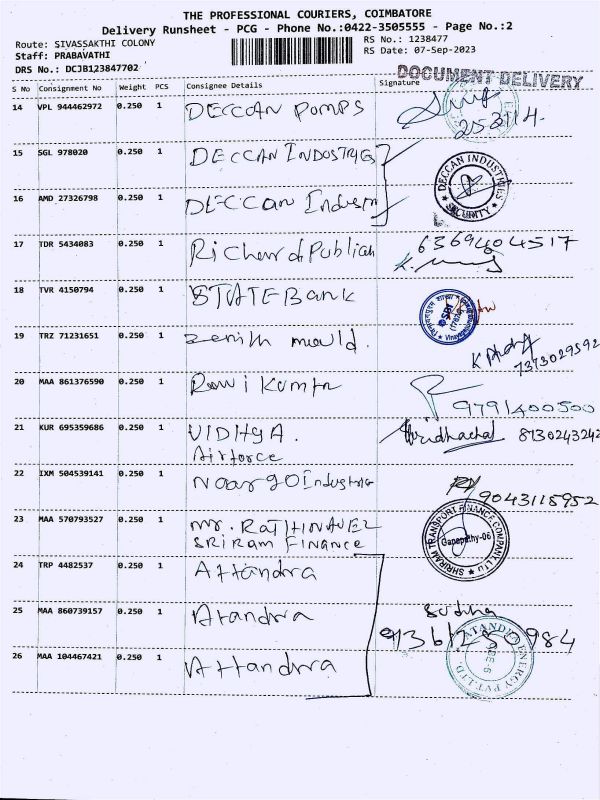 THE PROFESSIONAL COURIERS, COIMBATORE
Delivery Runsheet - PCG - Phone No.:0422-3505555 - Page No.:2
Route: SIVASSAKTHI COLONY
RS No.: 1238477
Staff: PRABAVATHI
RS Date: 07-Sep-2023
DRS No.: DCJB123847702
DOCUMENT DELIVERY
S No Consignment No Weight PCS Consignee Details Signature
14 VPL 944462972 0.250 1 DECCAN PUMPS
253114.
15 SGL 978020 0.250 1 DECCAN INDUSTRIES
DECCAN INDUSTRIES
SECURITY
16 AMD 27326798 0.250 1 DECCan Industri
17 TDR 5434083 0.250 1 Richard Publicati 6369404517
18 TVR 4150794 0.250 1 STATE Bank
SBI
19 TRZ 71231651 0.250 1 zenith mould.
7373029592
20 MAA 861376590 0.250 1 Ravi Kumar
9791400500
21 KUR 695359686 0.250 1 VIDHYA. 8130243242
Airforce
22 IXM 504539141 0.250 1 Industries
9043115952
23 MAA 570793527 0.250 1 Mr. RATHINAVEL
SRIRAM FINANCE
SHRIRAM TRANSPORT FINANCE COMPANY LTD
Ganapathy-06
24 TRP 4482537 0.250 1 Attandra
25 MAA 860739157 0.250 1 Atandra
26 MAA 104467421 0.250 1 Attandra
ATANDRA ENERGY PVT. LTD.
CBE-6